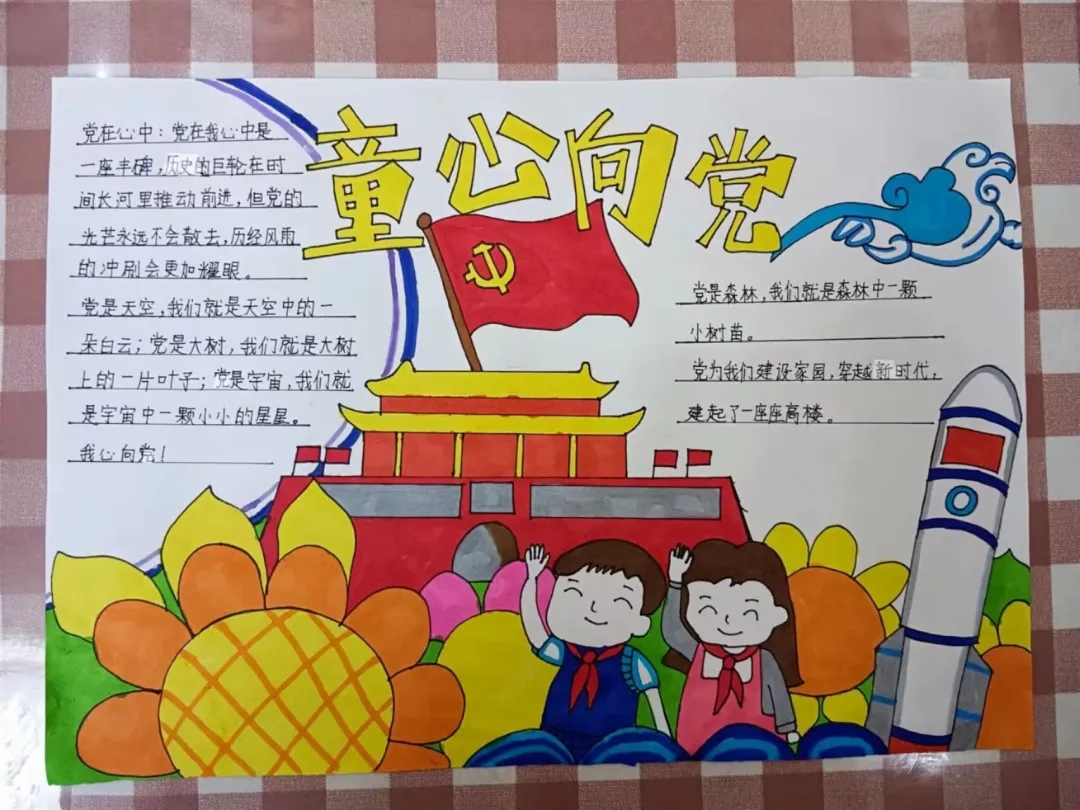 童心向党
党在心中：党在我心中是
一座丰碑，历史的巨轮在时
间长河里推动前进，但党的
光芒永远不会散去，历经风雨
的冲刷会更加耀眼。
党是天空，我们就是天空中的一
朵白云；党是大树，我们就是大树
上的一片叶子；党是宇宙，我们就
是宇宙中一颗小小的星星。
我心向党！
党是森林，我们就是森林中一颗
小树苗。
党为我们建设家园，穿越新时代，
建起了一座座高楼。